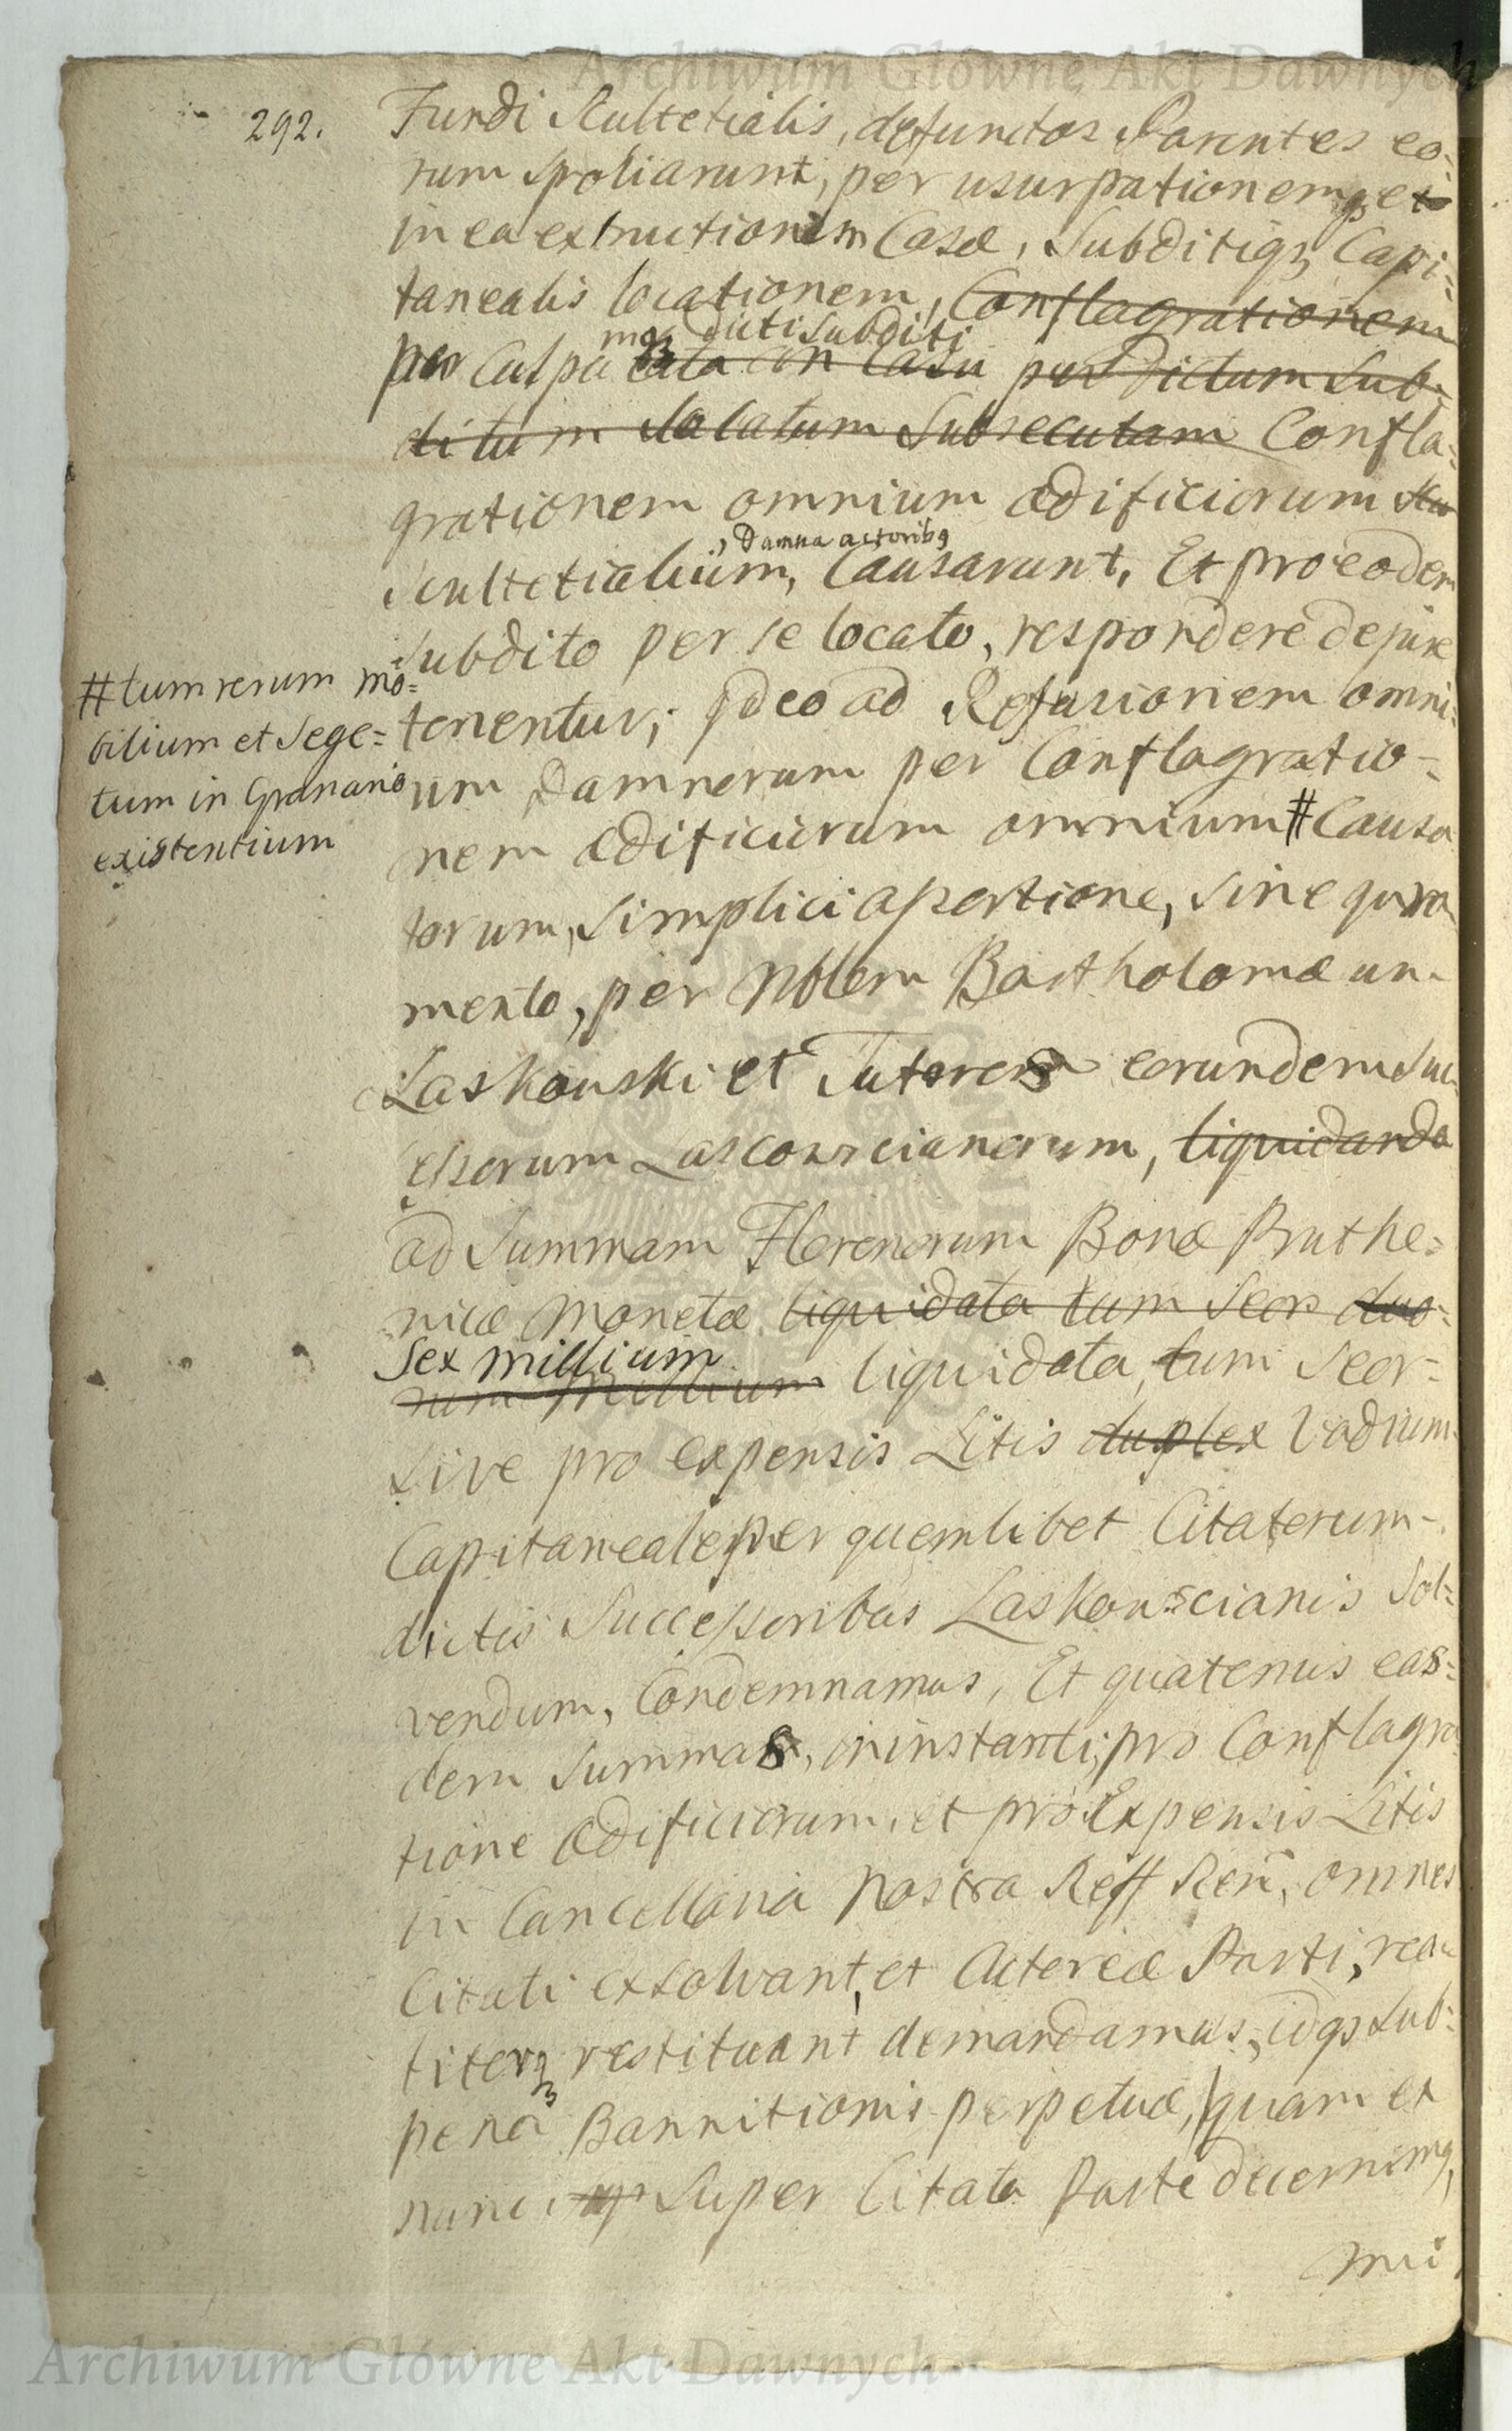 Archiwum Główne Akt Dawnych
292.
Fundi Scultetialis, defunctos Parentes eo-
rum Spoliarunt, per usurpationemq; et
in ea extructionem Casæ, Subditiq; Capi-
tanealis locationem, Conflagrationem
mq; dicti Subditi
per Culpa casu per dictum Sub-
ditum locatum Subsecutam Confla-
grationem omnium ædificiorum Scu
, Damna actorib9
Scultetialium, Causarunt, Et pro eodem
Subdito per se locato, respondere de jure
tenentur; Ideo ad Refusionem omni-
um Damnorum per Conflagratio-
nem ædificiorum omnium # Causa
torum, Simplici asportione, Sine jura
mento, per Nblem Bartholomæum
Laskouski et Tutores eorundem Suc-
cessorum Lascovscianorum, liquidanda
ad Summam Florenorum Bonæ Pruthe-
nicæ Monetæ liquidata tum Seors duo-
Sex millium
rum Millium liquidata, tum Seor-
sive pro expensis Litis duplex Vadium
Capitaneale per quemlibet Citatorum
dictis Successoribus Laskouscianis Sol-
vendum, Condemnamus, Et quatenus eas-
dem Summas, in instanti, pro Conflagra-
tione ædificiorum, et pro Expensis Litis
in Cancellaria Nostra Reff Ren, omnes
Citati exsolvant, et Actoreæ Parti, rea-
literq; restituant demandamus, idq; Sub-
pena Bannitionis perpetuæ, quam ex
nunc Super Citata Parte decernim9,
# tum rerum mo-
bilium et Sege-
tum in Granario
existentium
Archiwum Główne Akt Dawnych